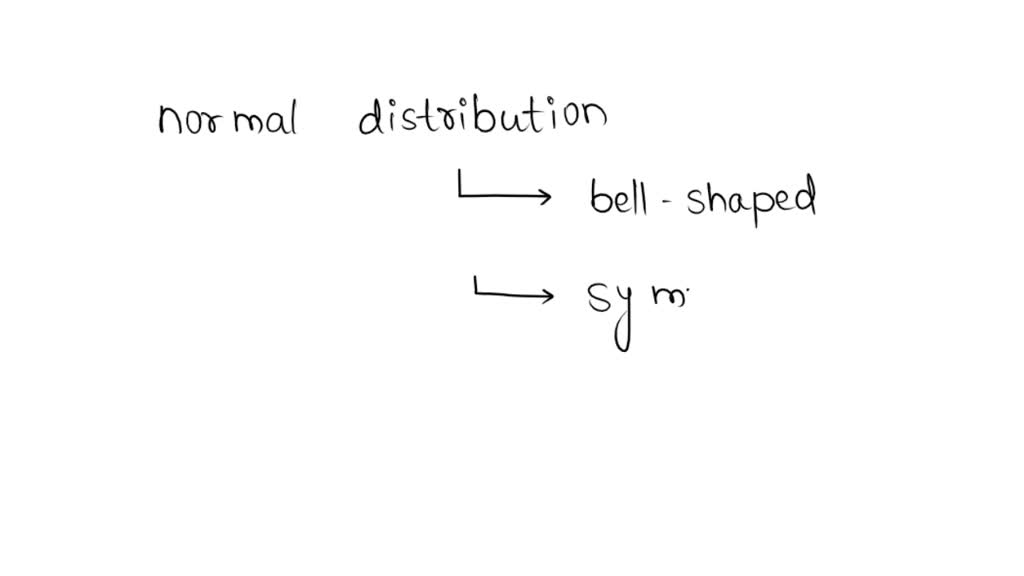 normal distribution
bell-shaped
sym